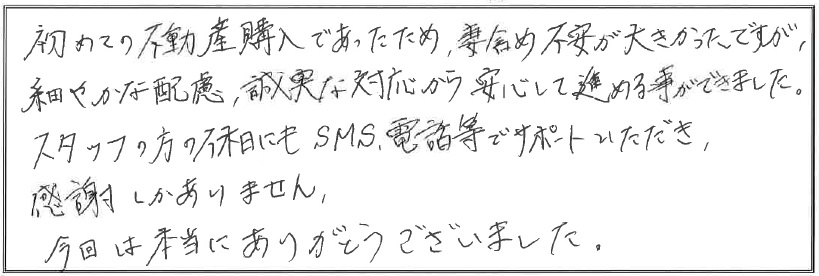 初めての不動産購入であったため,妻含め不安が大きかったんですが,
細やかな配慮,誠実な対応から安心して進める事ができました。
スタッフの方の休日にもSMS、電話等でサポートいただき,
感謝しかありません,
今回は本当にありがとうございました。